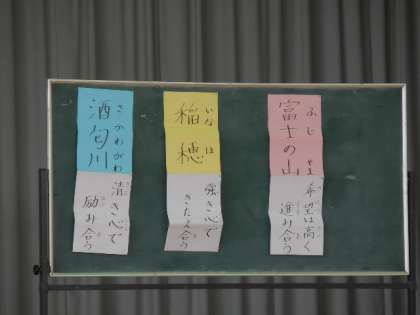 ふじ やま
富士の山
希望は高く
進み合う
いな ほ
稲穂
強き心で
きたえ合う
さかわがわ
酒匂川
清き心で
励み合う